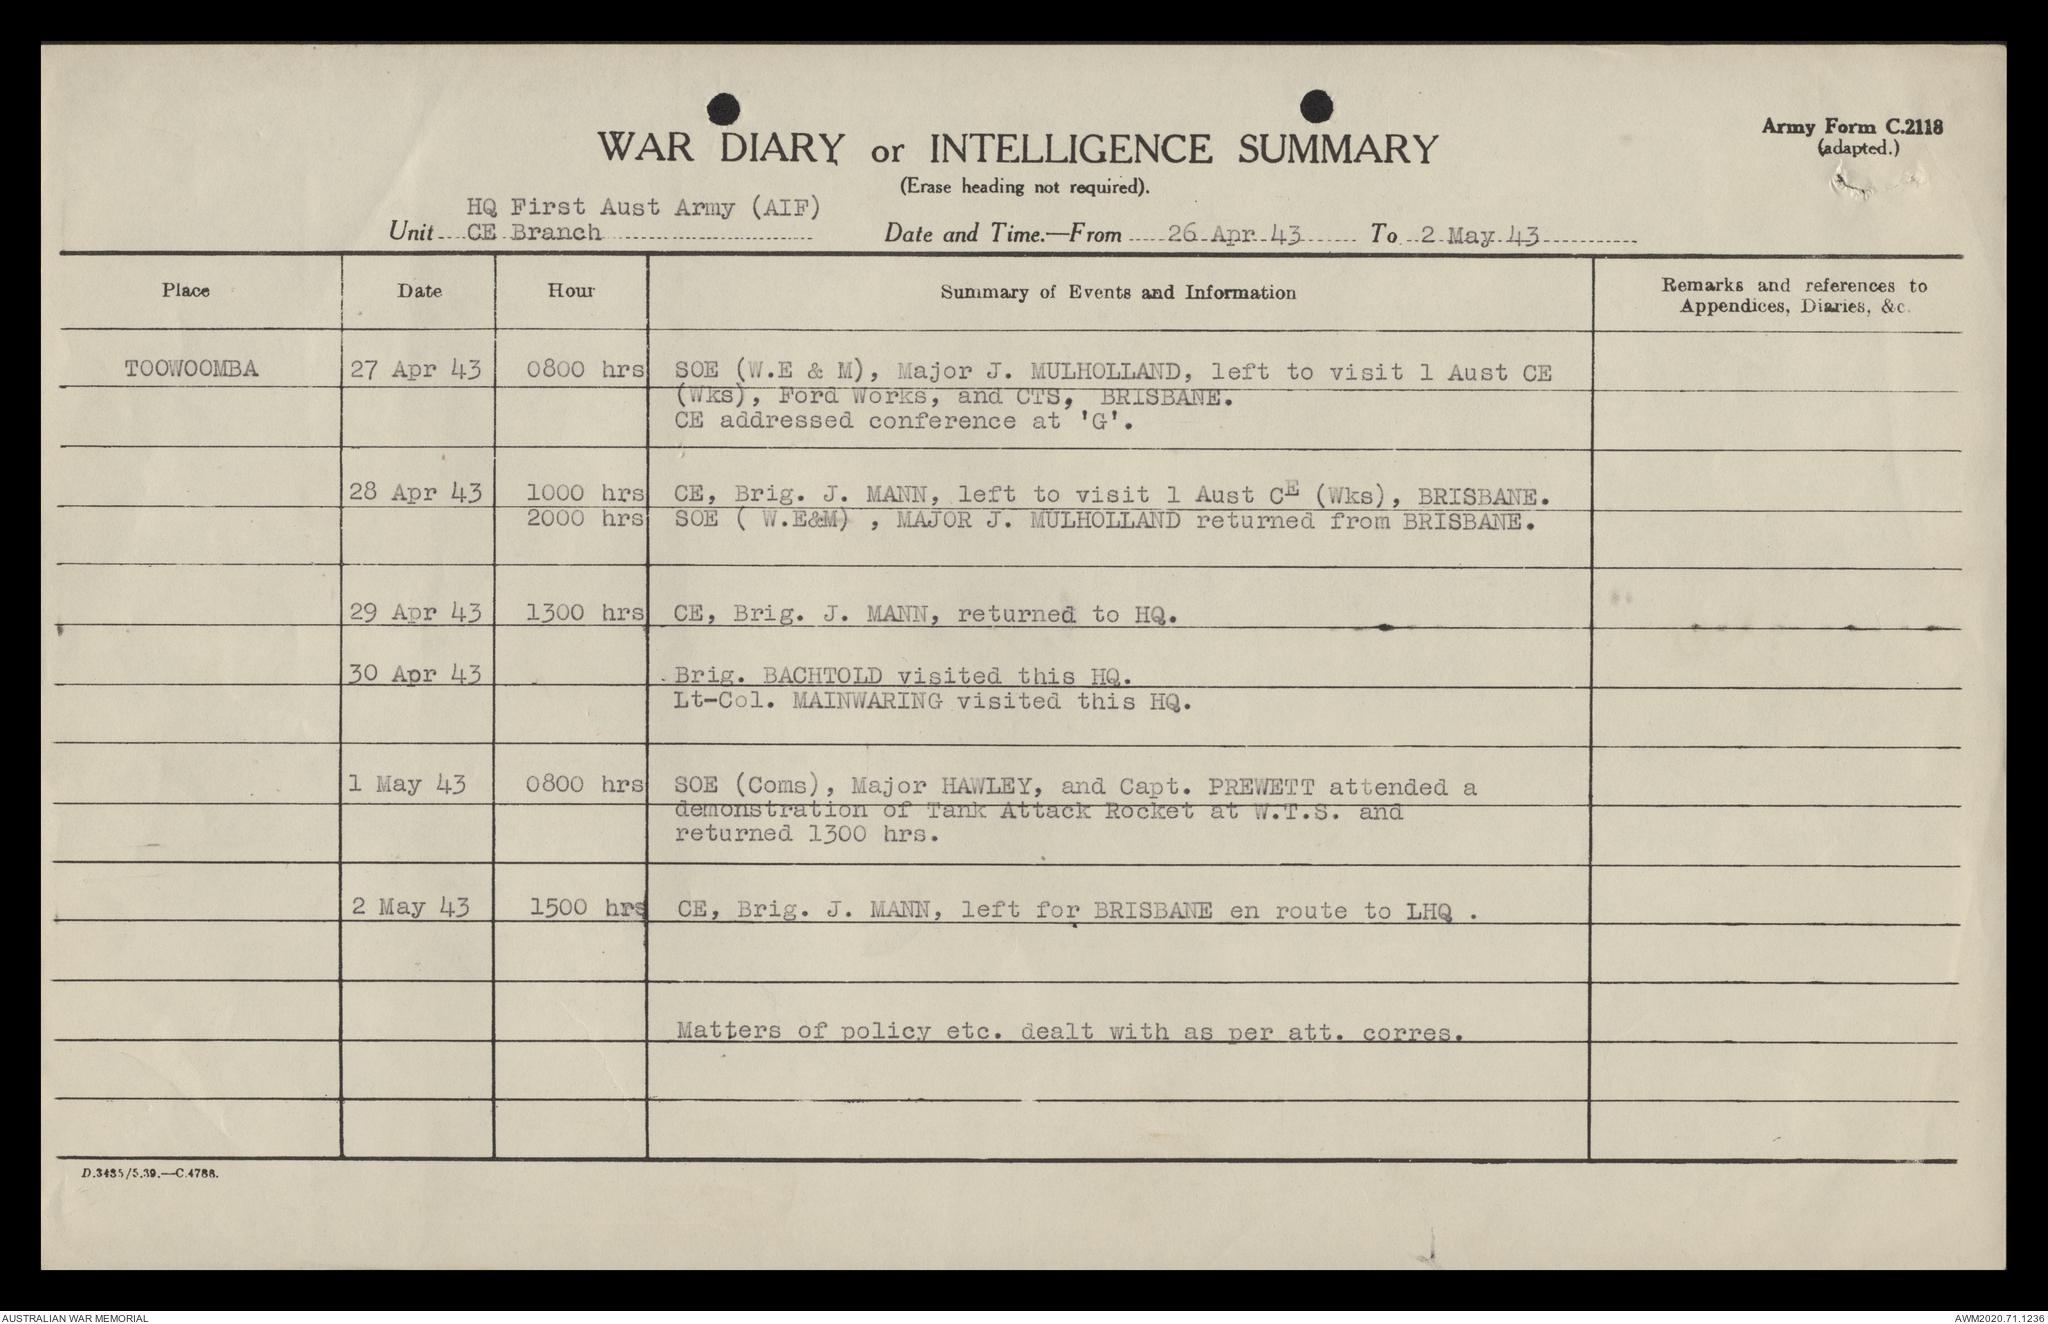 WAR DIARY or INTELLIGENCE SUMMARY
Army Form C.2118
(adapted.)
(Erase heading not required).
HQ First Aust Army (AIF)
Unit CE Branch Date and Time.—From 26 Apr 43 To 2 May 43
Place Date Hour Summary of Events and Information Remarks and references to
Appendices, Diaries, &c.
TOOWOOMBA 27 Apr 43 0800 hrs SOE (W.E & M), Major J. MULHOLLAND, left to visit 1 Aust CE
(Wks), Ford Works, and CTS, BRISBANE.
CE addressed conference at 'G'.
28 Apr 43 1000 hrs CE, Brig. J. MANN, left to visit 1 Aust CE (Wks), BRISBANE.
2000 hrs SOE ( W.E&M) , MAJOR J. MULHOLLAND returned from BRISBANE.
29 Apr 43 1300 hrs CE, Brig. J. MANN, returned to HQ.
30 Apr 43 Brig. BACHTOLD visited this HQ.
Lt-Col. MAINWARING visited this HQ.
1 May 43 0800 hrs SOE (Coms), Major HAWLEY, and Capt. PREWETT attended a
demonstration of Tank Attack Rocket at W.T.S. and
returned 1300 hrs.
2 May 43 1500 hrs CE, Brig. J. MANN, left for BRISBANE en route to LHQ .
Matters of policy etc. dealt with as per att. corres.
D.3485/5.39.—C.4788.
AUSTRALIAN WAR MEMORIAL AWM2020.71.1236